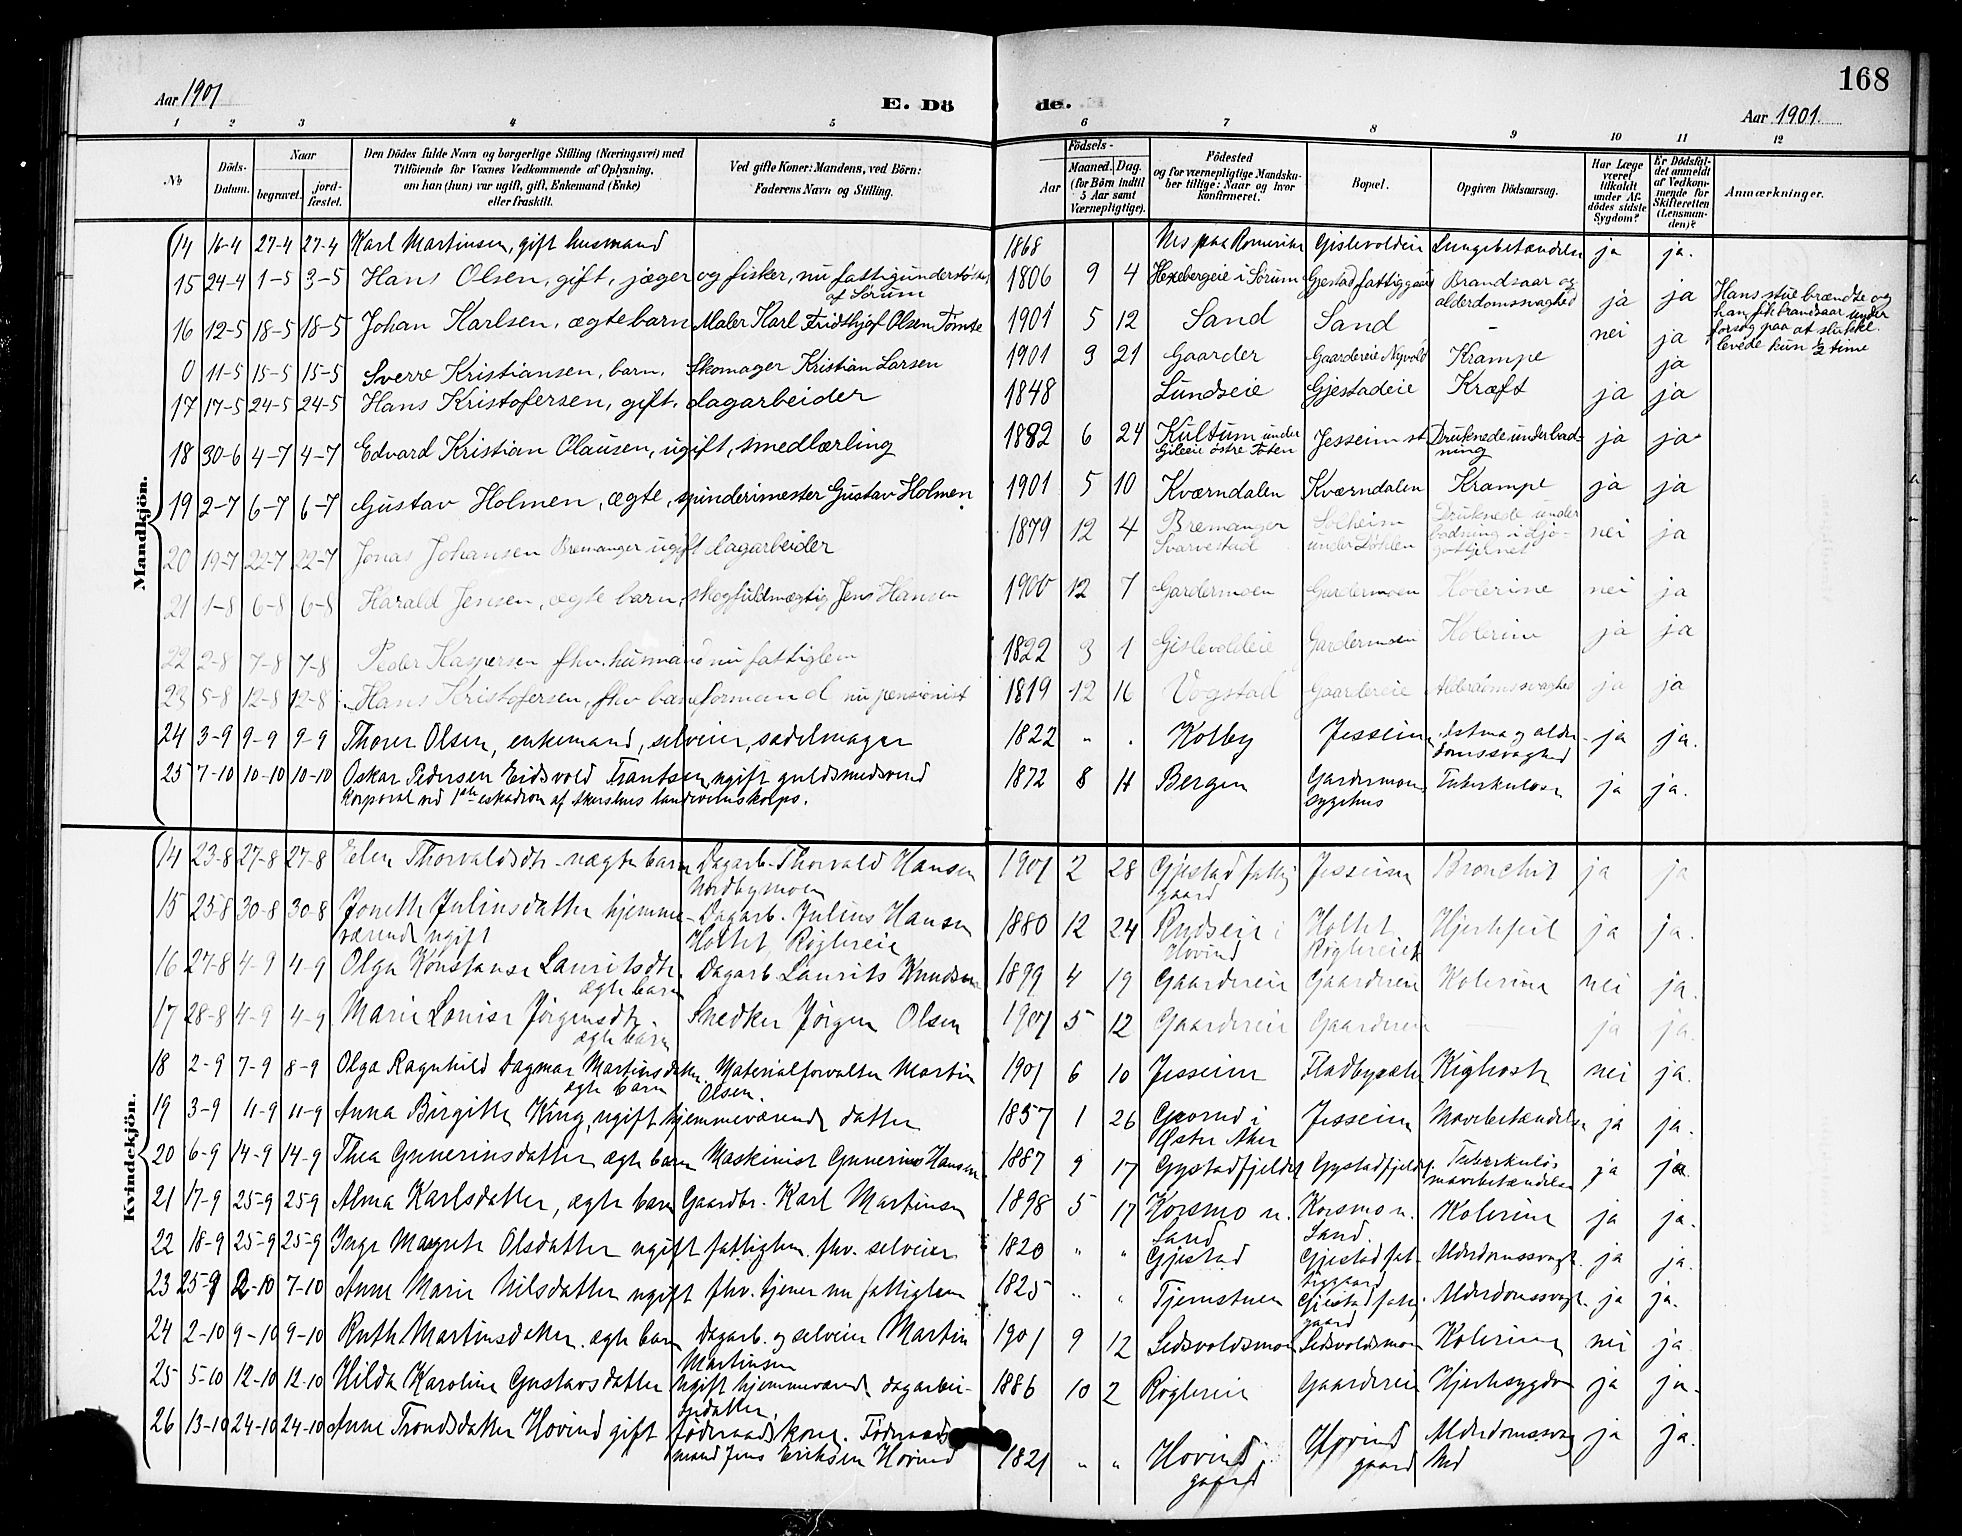 168
Aar 1901
E. Dö
de.
Aar 1901.
1 2 3 4 5 6 7 8 9 10 11 12
No
Döds-Datum.
Naar
begravet.
jord-fæstet.
Den Dödes fulde Navn og borgerlige Stilling (Næringsvei) med
Tilföiende for Voxnes Vedkommende af Oplysning,
om han (hun) var ugift, gift, Enkemand (Enke)
eller fraskilt.
Ved gifte Koner: Mandens, ved Börn:
Faderens Navn og Stilling.
Födsels-
Aar
Maaned. Dag.
(for Börn indtil
5 Aar samt
Værnepligtige).
Födested
og for værnepligtige Mandska-
ber tillige: Naar og hvor
konfirmeret.
Bopæl.
Opgiven Dödsaarsag.
Har Læge
været
tilkaldt
under Af-
dödes sidste
Sygdom?
Er Dödsfal-
det anmeldt
af Vedkom-
mende for
Skifteretten
(Lensman-
den)?
Anmærkninger.
Mandkjön.
14 16-4 27-4 27-4 Karl Martinsen, gift husmand 1868 Nes paa Romerike Gislevoldeie Lungebetændelse ja ja.
15 24-4 1-5 3-5 Hans Olsen, gift, jæger og fisker, nu fattigunderstøttet af Sørum 1806 9 4 Hexebergeie i Sørum Gjestad fattiggaard Brandsaar og alderdomssvaghed ja ja Hans stue brændte og han fik brandsaar under forsøg paa at slukke.
16 12-5 18-5 18-5 Johan Karlsen, ægte barn Maler Karl Fridthjof Olsen Tømte 1901 5 12 Sand Sand - nei ja levede kun 1/2 time
0 11-5 15-5 15-5 Sverre Kristiansen, barn, Skomager Kristian Larsen 1901 3 21 Gaarder Gaardereie Nyvold Krampe ja
17 17-5 24-5 24-5 Hans Kristofersen, gift, dagarbeider 1848 Lundseie Gjestadeie Kræft ja ja
18 30-6 4-7 4-7 Edvard Kristian Olausen, ugift, smedlærling 1882 6 24 Kultum under Gileeie østre Toten Jesseim st. Druknede under badning ja ja
19 2-7 6-7 6-7 Gustav Holmen, ægte, spinderimester Gustav Holmen 1901 5 10 Kværndalen Kværndalen Krampe ja ja
20 19-7 22-7 22-7 Jonas Johansen Bremanger ugift dagarbeider 1879 12 4 Bremanger Svarvestad Solheim under Døhlen Druknede under badning i nei ja
21 1-8 6-8 6-8 Harald Jensen, ægte barn, skogfuldmægtig Jens Hansen 1900 12 7 Gardermoen Gardermoen Kolerine nei ja
22 2-8 7-8 7-8 Peder Kaspersen fhv. husmand nu fattiglem 1822 3 1 Gislevoldeie Gardermoen Kolerine ja ja
23 5-8 12-8 12-8 Hans Kristofersen, fhv baneformand nu pensionist 1819 12 16 Vogstad Gaardereie Alderdomssvaghed ja ja
24 3-9 9-9 9-9 Thorer Olsen, enkemand, selveier, sadelmager 1822 " " Kolby Jesseim Astma og alderdomssvaghed ja ja.
25 7-10 10-10 10-10 Oskar Pedersen Eidsvold Frantsen, ugift guldsmedsvend 1872 8 11 Bergen Gardermoen sygehus Tuberkulose ja ja.
Korporal ved 1ste eskadron af Akershus landeværnskorps.
Kvindekjön.
14 23-8 27-8 27-8 Elen Thorvaldsdtr. uægte barn Dagarb. Thorvald Hansen Nordbymoen 1901 2 28 Gjestad fattiggaard Jesseim Bronchit ja ja
15 25-8 30-8 30-8 Jonette Juliusdatter hjemmeværende ugift Dagarb. Julius Hansen Holtet, Røglereie 1880 12 24 Rudseie i Hovind Holtet Røglereiet Hjertefeil ja ja.
16 27-8 4-9 4-9 Olga Konstanse Lauritsdtr. ægte barn Dagarb Laurits Knudsen 1899 4 19 Gaardereie Gaardereie Kolerine nei ja.
17 28-8 4-9 4-9 Marie Louise Jörgensdtr. ægte barn Snedker Jörgen Olsen 1901 5 12 Gaardereie Gaardereie - ja ja.
18 2-9 7-9 8-9 Olga Ragnhild Dagmar Martinsdatter ægte barn Materialforvalter Martin Olsen. 1901 6 10 Jesseim Fladbysæter Kighoste nei ja.
19 3-9 11-9 11-9 Anna Birgitte King, ugift hjemmeværende datter 1857 1 26 Grorud i Østre Aker Jesseim Mavebetændelse ja ja.
20 6-9 14-9 14-9 Thea Gunerinsdatter ægte barn Maskinist Gunerius Hansen 1887 9 17 Gystadfjeldet Gystadfjeldet Tuberkuløs mavebetændelse ja ja.
21 17-9 25-9 25-9 Alma Karlsdatter, ægte barn Gaardbr. Karl Martinsen 1898 5 17 Korsmo n. Sand Korsmo n. Sand. Kolerine ja ja.
22 18-9 25-9 25-9 Inge Magrete Olsdatter ugift fattiglem. fhv. selveier 1820 " " Gjestad Gjestad fattiggaard Alderdomssvagh. ja ja.
23 25-9 2-10 7-10 Anne Marie Nilsdatter ugift fhv. tjener nu fattiglem 1825 " " Tjernstuen Gjestad fattiggaard Alderdomssvagh. ja ja.
24 2-10 9-10 9-10 Ruth Martinsdatter. ægte barn Dagarb. og selveier Martin Martinsen 1901 9 12 Ledsvoldsmoen Ledsvoldsmoen Kolerine nei ja
25 5-10 12-10 12-10 Hilda Karoline Gustavsdatter ugift hjemmeværende dagarbeiderdatter. 1886 10 2 Røglereie Gaardereie Hjertesygdom ja ja.
26 13-10 24-10 24-10 Anne Trondsdatter Hovind gift föderaadskone. Föderaadsmand Jens Eriksen Hovind 1821 " " Hovind gaard Hovind gaard Alderdomssvaghed ja ja.